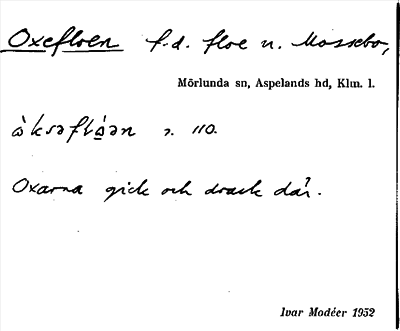 Oxefloen f.d. floe n. Mossebo,
Mörlunda sn, Aspelands hd, Klm. l.
ò̀ksəflɷ̀ən 110.
Oxarna gick och drack där.
Ivar Modéer 1952